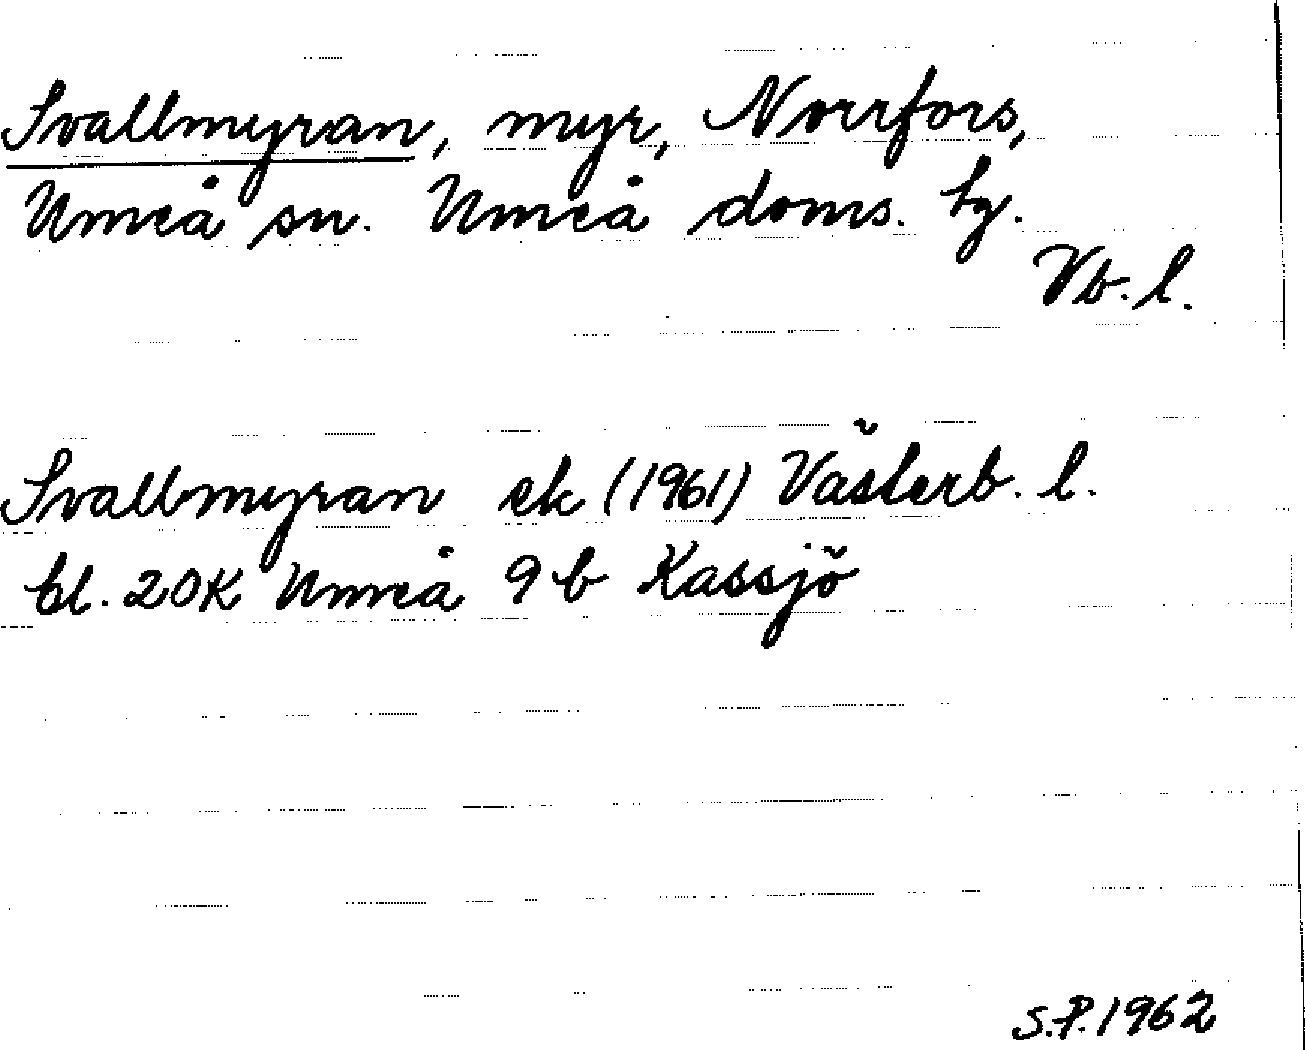 Svallmyran, myr, Norrfors,
Umeå sn. Umeå doms. tg.
Vb. l.
Svallmyran ek (1961) Västerb. l.
bl. 20K Umeå 9 b Kassjö
S.P. 1962